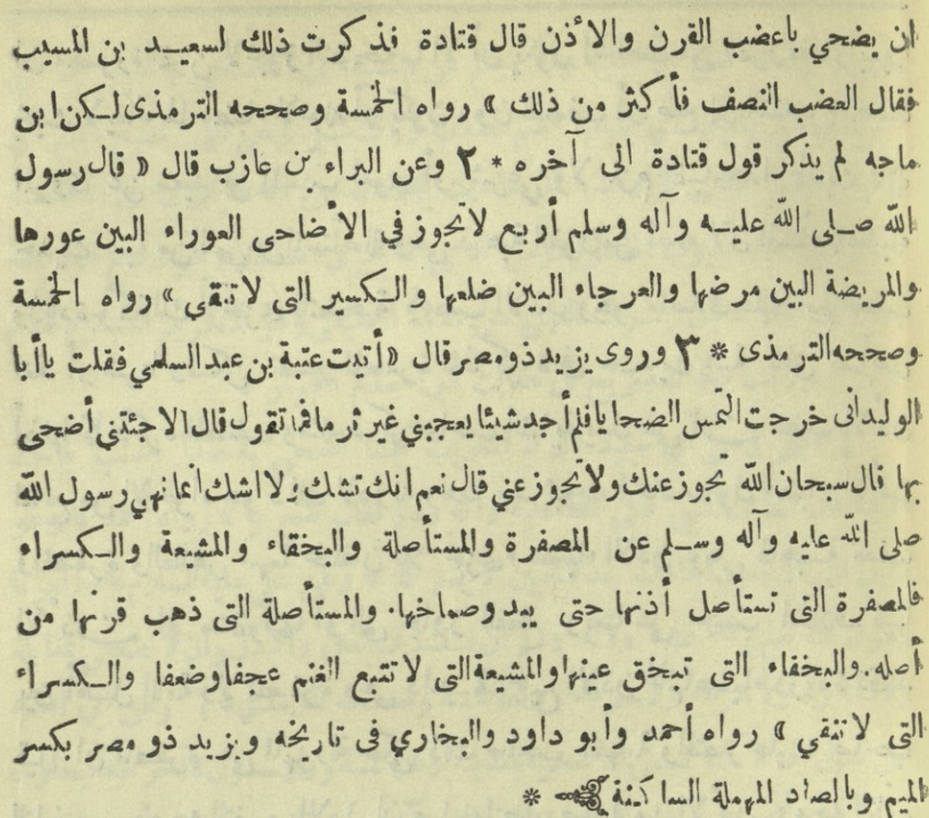 ان يضحي باعضب القرن والأذن قال قتادة فذكرت ذلك لسعيد بن المسيب
فقال العضب النصف فأكثر من ذلك » رواه الخمسة وصححه الترمذى لكن ابن
ماجه لم يذكر قول قتادة الى آخره * ٢ وعن البراء بن عازب قال « قال رسول
الله صلى الله عليه وآله وسلم أربع لاتجوز في الأضاحى العوراء البين عورها
والمريضة البين مرضها والعرجاء البين ضلعها والكسير التى لاتنقى » رواه الخمسة
وصححه الترمذى * ٣ وروى يزيد ذو مصر قال « أتيت عتبة بن عبد السلمي فقلت ياأبا
الوليد انى خرجت التمس الضحايا فلم أجد شيئا يعجبني غير ثرما فما تقول قال ألا جئتني أضحى
بها قال سبحان الله تجوز عنك ولا تجوز عني قال نعم انك تشك ولا اشك انما نهي رسول الله
صلى الله عليه وآله وسلم عن المصفرة والمستأصلة والبخقاء والمشيعة والكسراء
فالمصفرة التى تستأصل أذنها حتى يبدو صماخها. والمستأصلة التى ذهب قرنها من
أصله. والبخقاء التى تبخق عينها والمشيعة التى لا تتبع الغنم عجفا وضعفا والكسراء
التى لا تنقي » رواه أحمد وأبو داود والبخاري فى تاريخه ويزيد ذو مصر بكسر
الميم وبالصاد المهملة الساكنة *